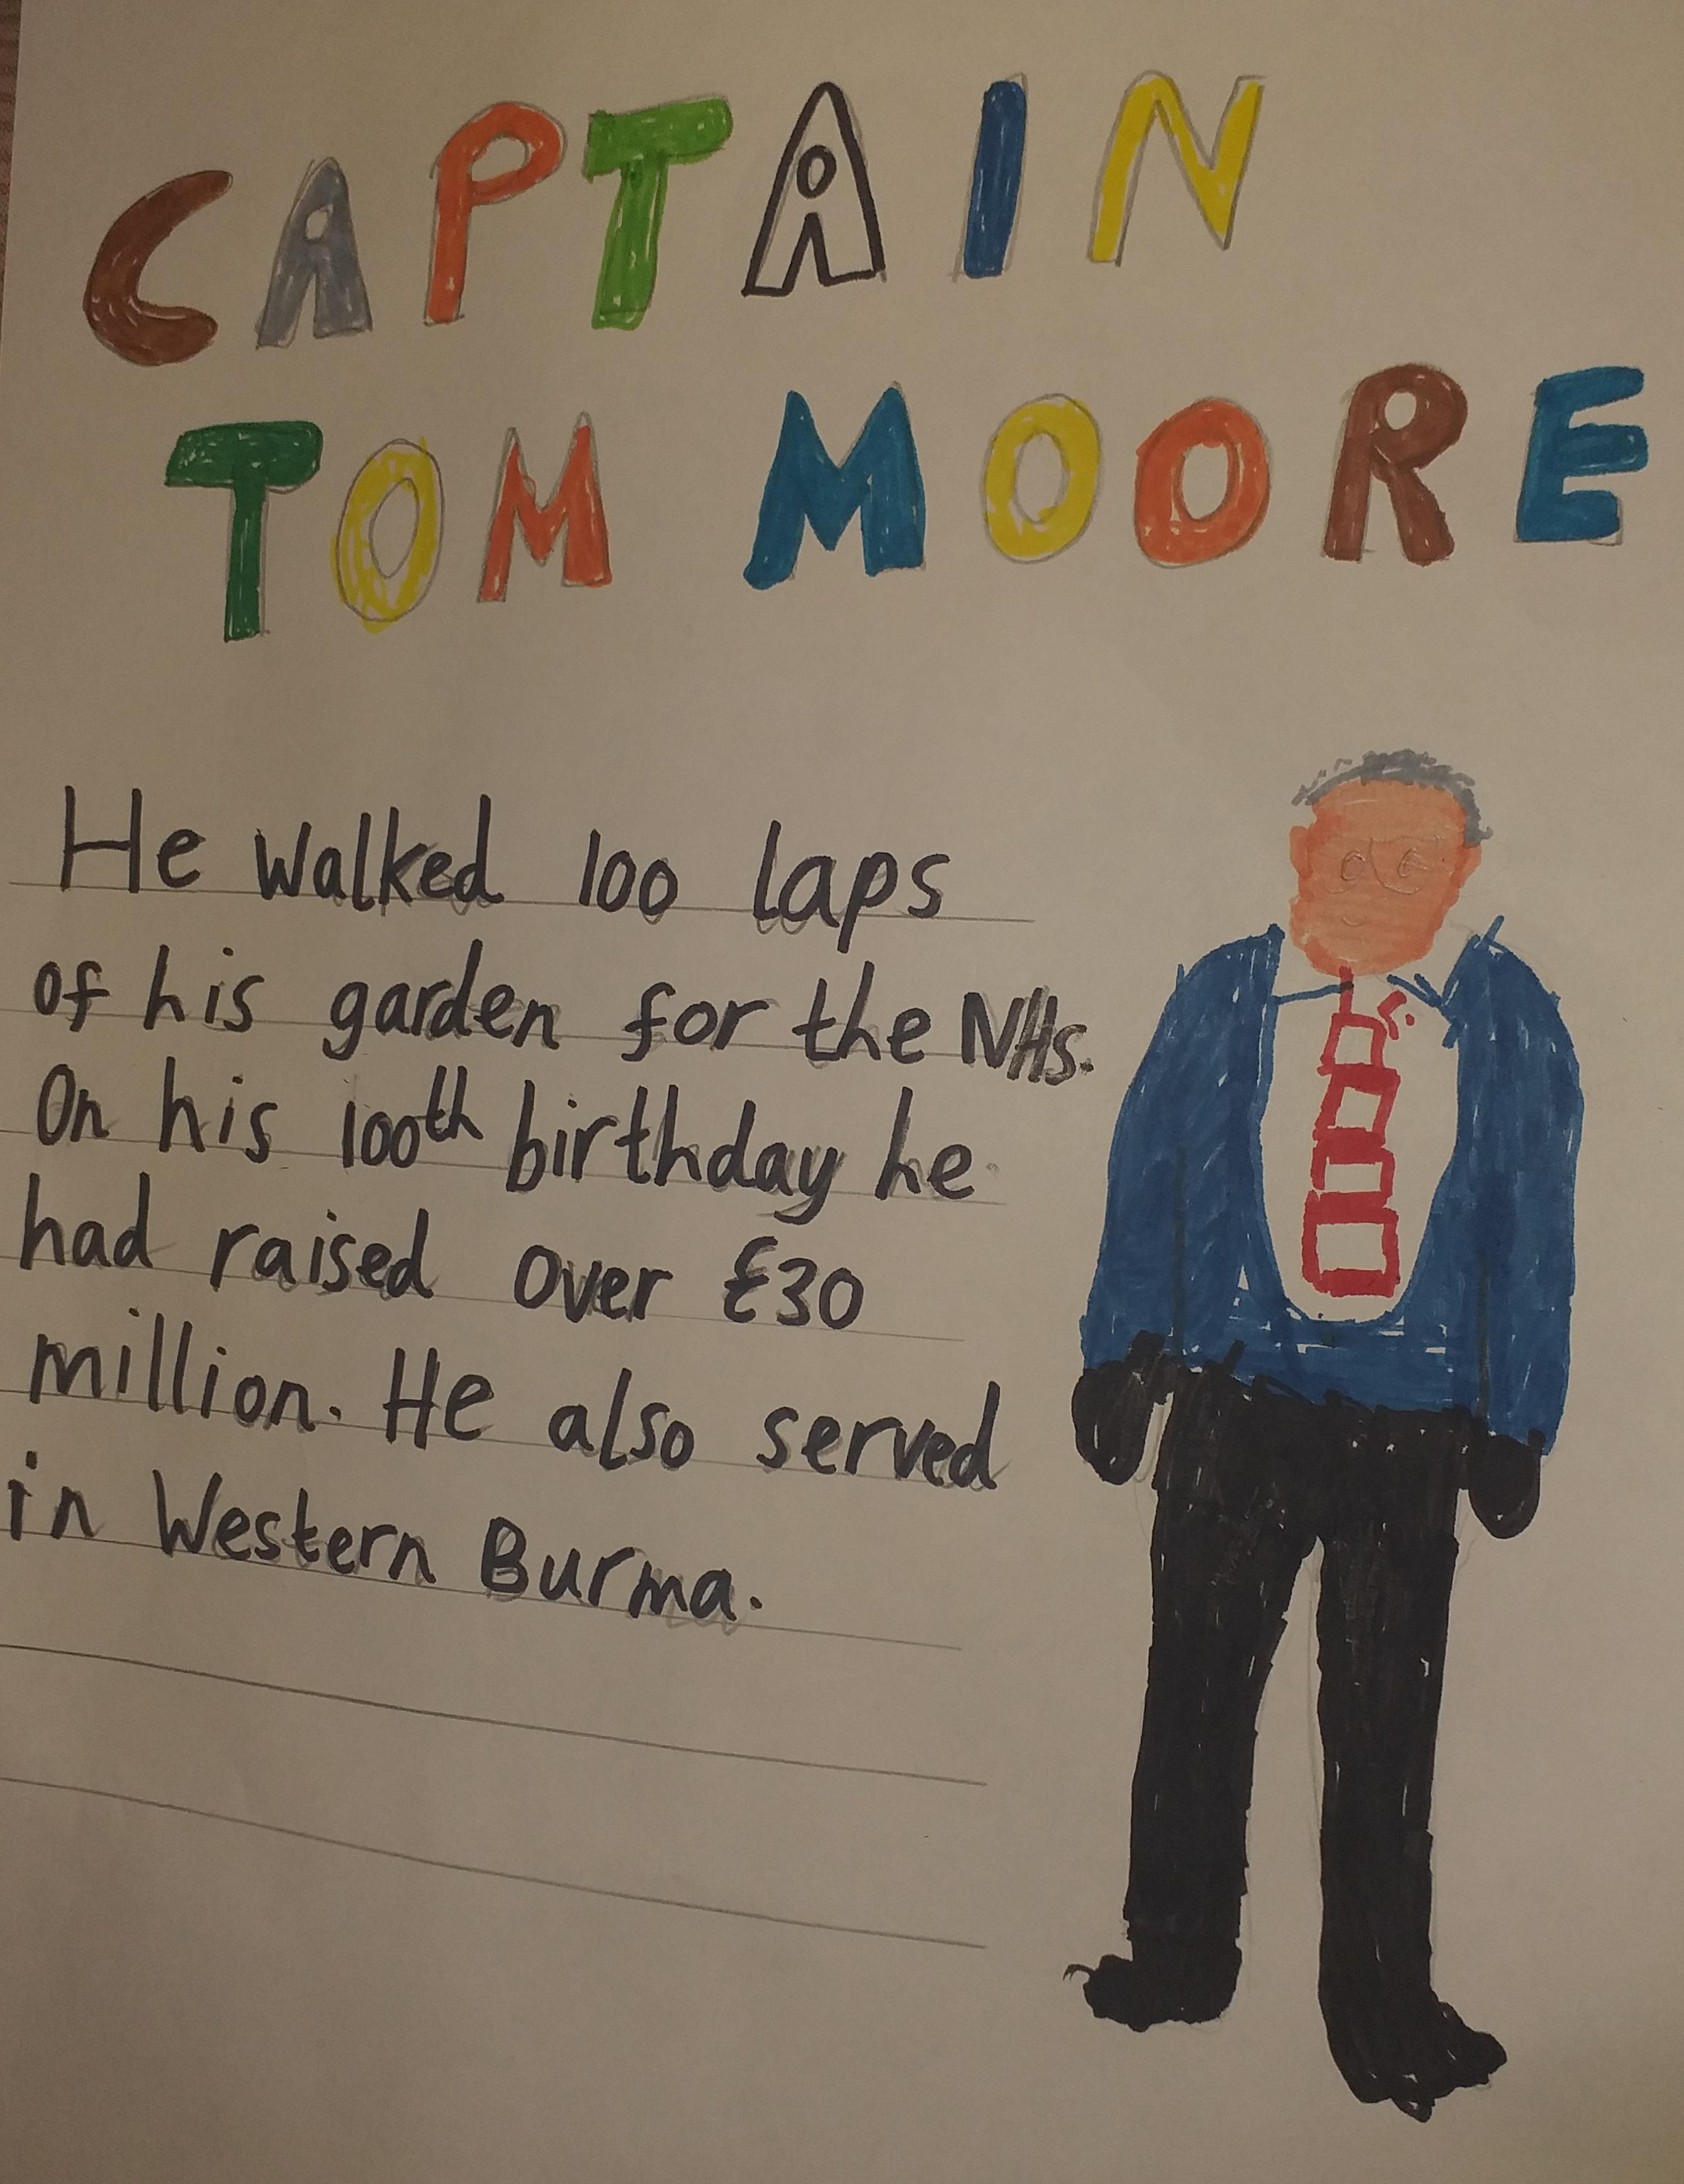 CAPTAIN
TOM MOORE
He walked 100 laps
of his garden for the NHs.
On his 100th birthday he
had raised over £30
million. He also served
in Western Burma.